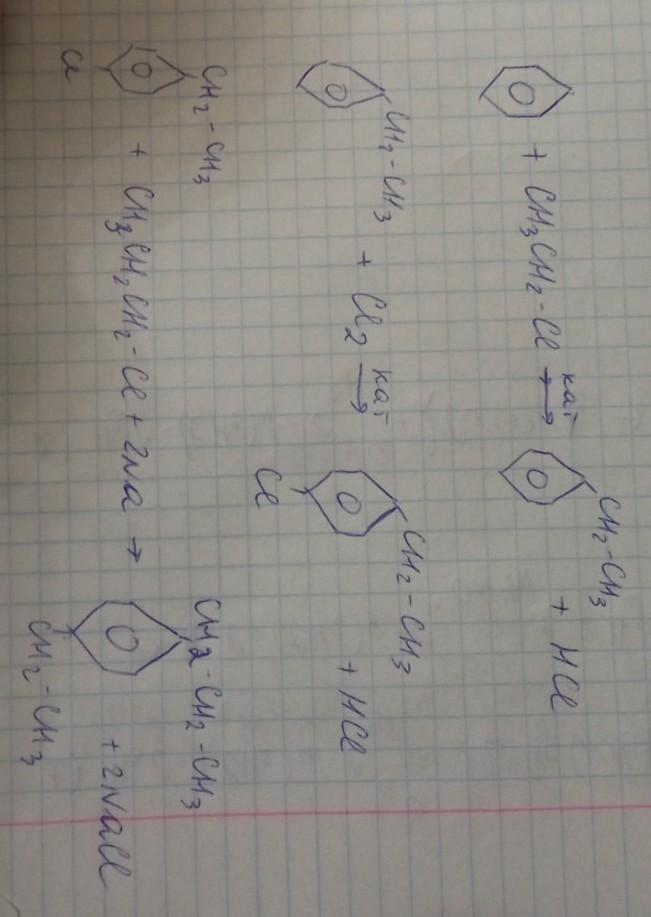 + CH3CH2-Cl кат → CH2-CH3 + HCl
CH2-CH3 + Cl2 кат → Cl CH2-CH3 + HCl
Cl CH2-CH3 + CH3CH2CH2-Cl + 2Na → CH2-CH2-CH3 CH2-CH3 + 2NaCl